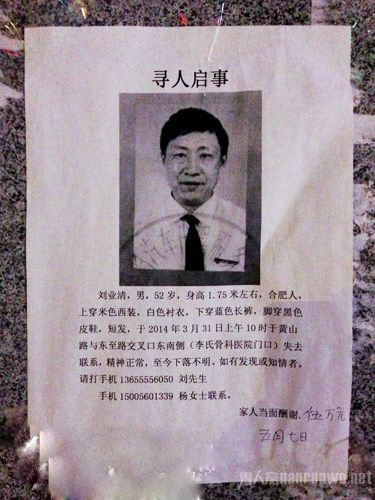 寻人启事
刘业清，男，52岁，身高1.75米左右，合肥人，
上穿米色西装，白色衬衣，下穿蓝色长裤，脚穿黑色
皮鞋，短发，于2014年3月31日上午10时于黄山
路与东至路交叉口东南侧（李氏骨科医院门口）失去
联系，精神正常，至今下落不明。如有发现或知情者，
请打手机13655556050 刘先生
手机15005601339 杨女士联系。
家人当面酬谢.伍万元
五月七日